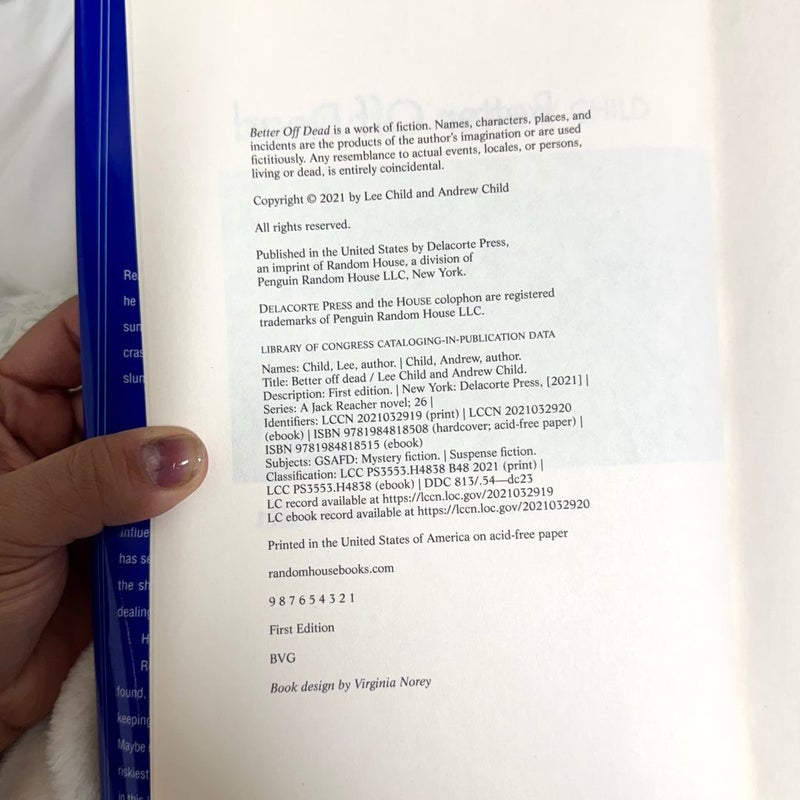 Better Off Dead is a work of fiction. Names, characters, places, and
incidents are the products of the author's imagination or are used
fictitiously. Any resemblance to actual events, locales, or persons,
living or dead, is entirely coincidental.
Copyright © 2021 by Lee Child and Andrew Child
All rights reserved.
Published in the United States by Delacorte Press,
an imprint of Random House, a division of
Penguin Random House LLC, New York.
DELACORTE PRESS and the HOUSE colophon are registered
trademarks of Penguin Random House LLC.
LIBRARY OF CONGRESS CATALOGING-IN-PUBLICATION DATA
Names: Child, Lee, author. | Child, Andrew, author.
Title: Better off dead / Lee Child and Andrew Child.
Description: First edition. | New York: Delacorte Press, [2021] |
Series: A Jack Reacher novel; 26 |
Identifiers: LCCN 2021032919 (print) | LCCN 2021032920
(ebook) | ISBN 9781984818508 (hardcover; acid-free paper) |
ISBN 9781984818515 (ebook)
Subjects: GSAFD: Mystery fiction. | Suspense fiction.
Classification: LCC PS3553.H4838 B48 2021 (print) |
LCC PS3553.H4838 (ebook) | DDC 813/.54—dc23
LC record available at https://lccn.loc.gov/2021032919
LC ebook record available at https://lccn.loc.gov/2021032920
Printed in the United States of America on acid-free paper
randomhousebooks.com
9 8 7 6 5 4 3 2 1
First Edition
BVG
Book design by Virginia Norey
he
has
the
found,
keeping
Maybe
riskiest